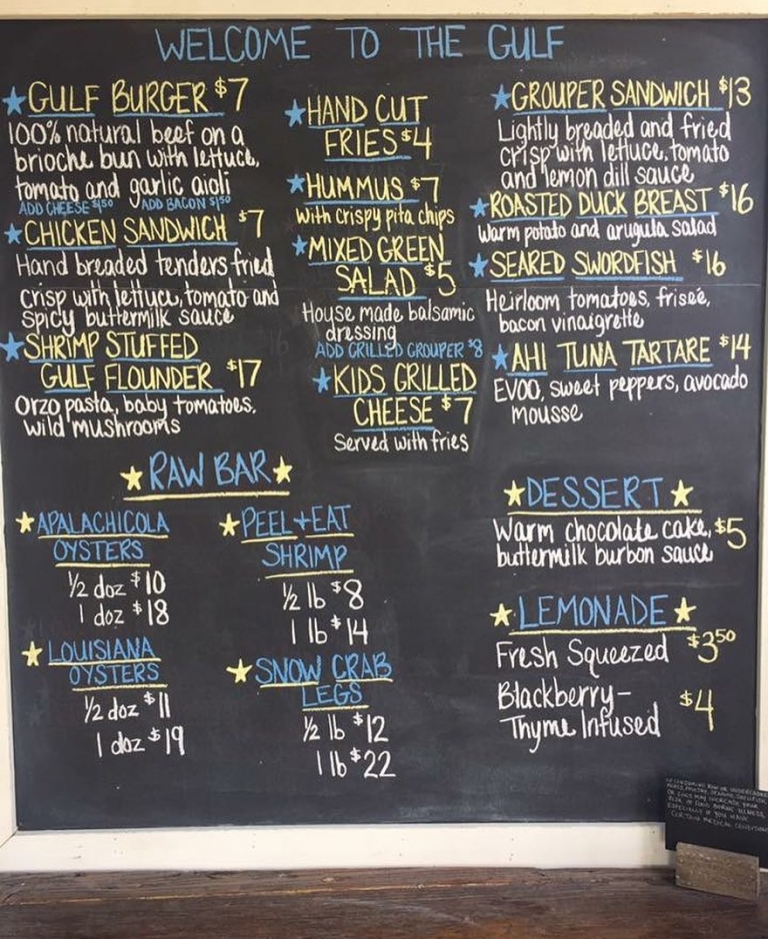 WELCOME TO THE GULF
GULF BURGER $7
100% natural beef on a
brioche bun with lettuce,
tomato and garlic aioli
ADD CHEESE $1.50 ADD BACON $1.50
CHICKEN SANDWICH $7
Hand breaded tenders fried
crisp with lettuce, tomato and
spicy buttermilk sauce
SHRIMP STUFFED
GULF FLOUNDER $17
Orzo pasta, baby tomatoes,
wild mushrooms
HAND CUT
FRIES $4
HUMMUS $7
with crispy pita chips
MIXED GREEN
SALAD $5
House made balsamic
dressing
ADD GRILLED GROUPER $8
KIDS GRILLED
CHEESE $7
Served with fries
GROUPER SANDWICH $13
Lightly breaded and fried
crisp with lettuce, tomato
and lemon dill sauce
ROASTED DUCK BREAST $16
warm potato and arugula salad
SEARED SWORDFISH $16
Heirloom tomatoes, frisée,
bacon vinaigrette
AHI TUNA TARTARE $14
EVOO, sweet peppers, avocado
mousse
RAW BAR
APALACHICOLA
OYSTERS
1/2 doz $10
1 doz $18
LOUISIANA
OYSTERS
1/2 doz $11
1 doz $19
PEEL+EAT
SHRIMP
1/2 lb $8
1 lb $14
SNOW CRAB
LEGS
1/2 lb $12
1 lb $22
DESSERT
Warm chocolate cake, $5
buttermilk burbon sauce
LEMONADE
Fresh Squeezed $3.50
Blackberry- $4
Thyme Infused
CONSUMING RAW OR UNDERCOOKED
MEATS, POULTRY, SEAFOOD, SHELLFISH,
OR EGGS MAY INCREASE YOUR
RISK OF FOOD BORNE ILLNESS,
ESPECIALLY IF YOU HAVE
CERTAIN MEDICAL CONDITIONS